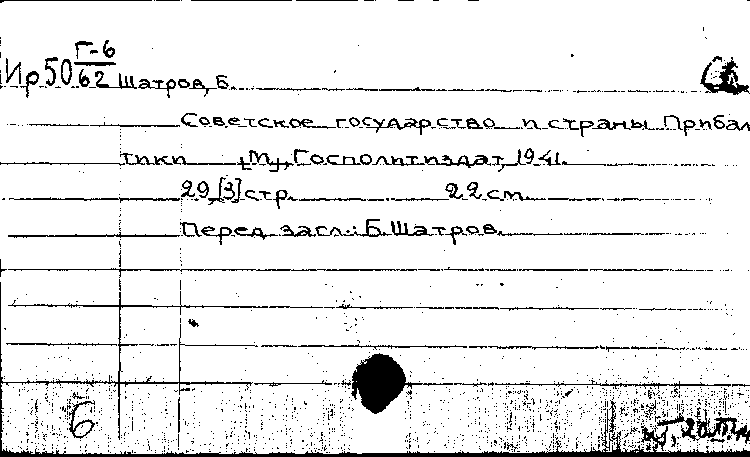 Г-6
Ир50 62 Шатров, Б.
Советское государство и страны Прибал
тики [М], Госполитиздат, 1941.
29 [3] стр. 22 см.
Перед загл.: Б. Шатров.
6